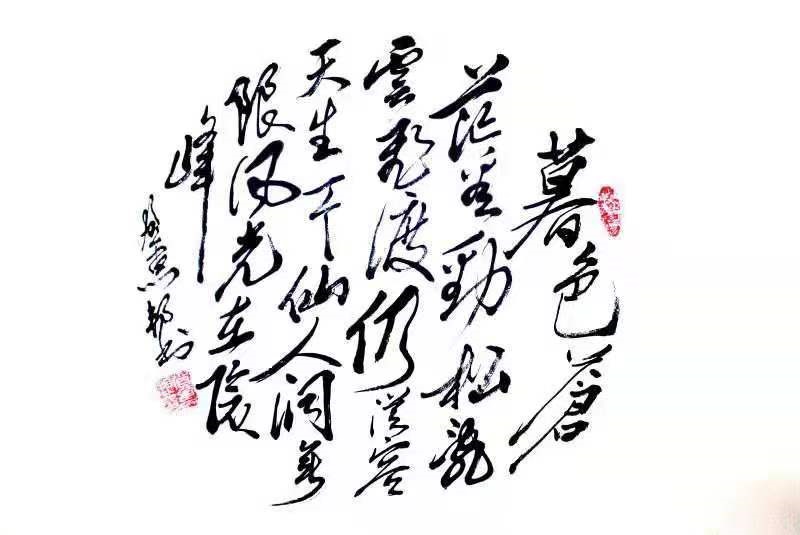 暮色蒼
茫看勁松亂
雲飛渡仍從容
天生一个仙人洞無
限風光在險
峰